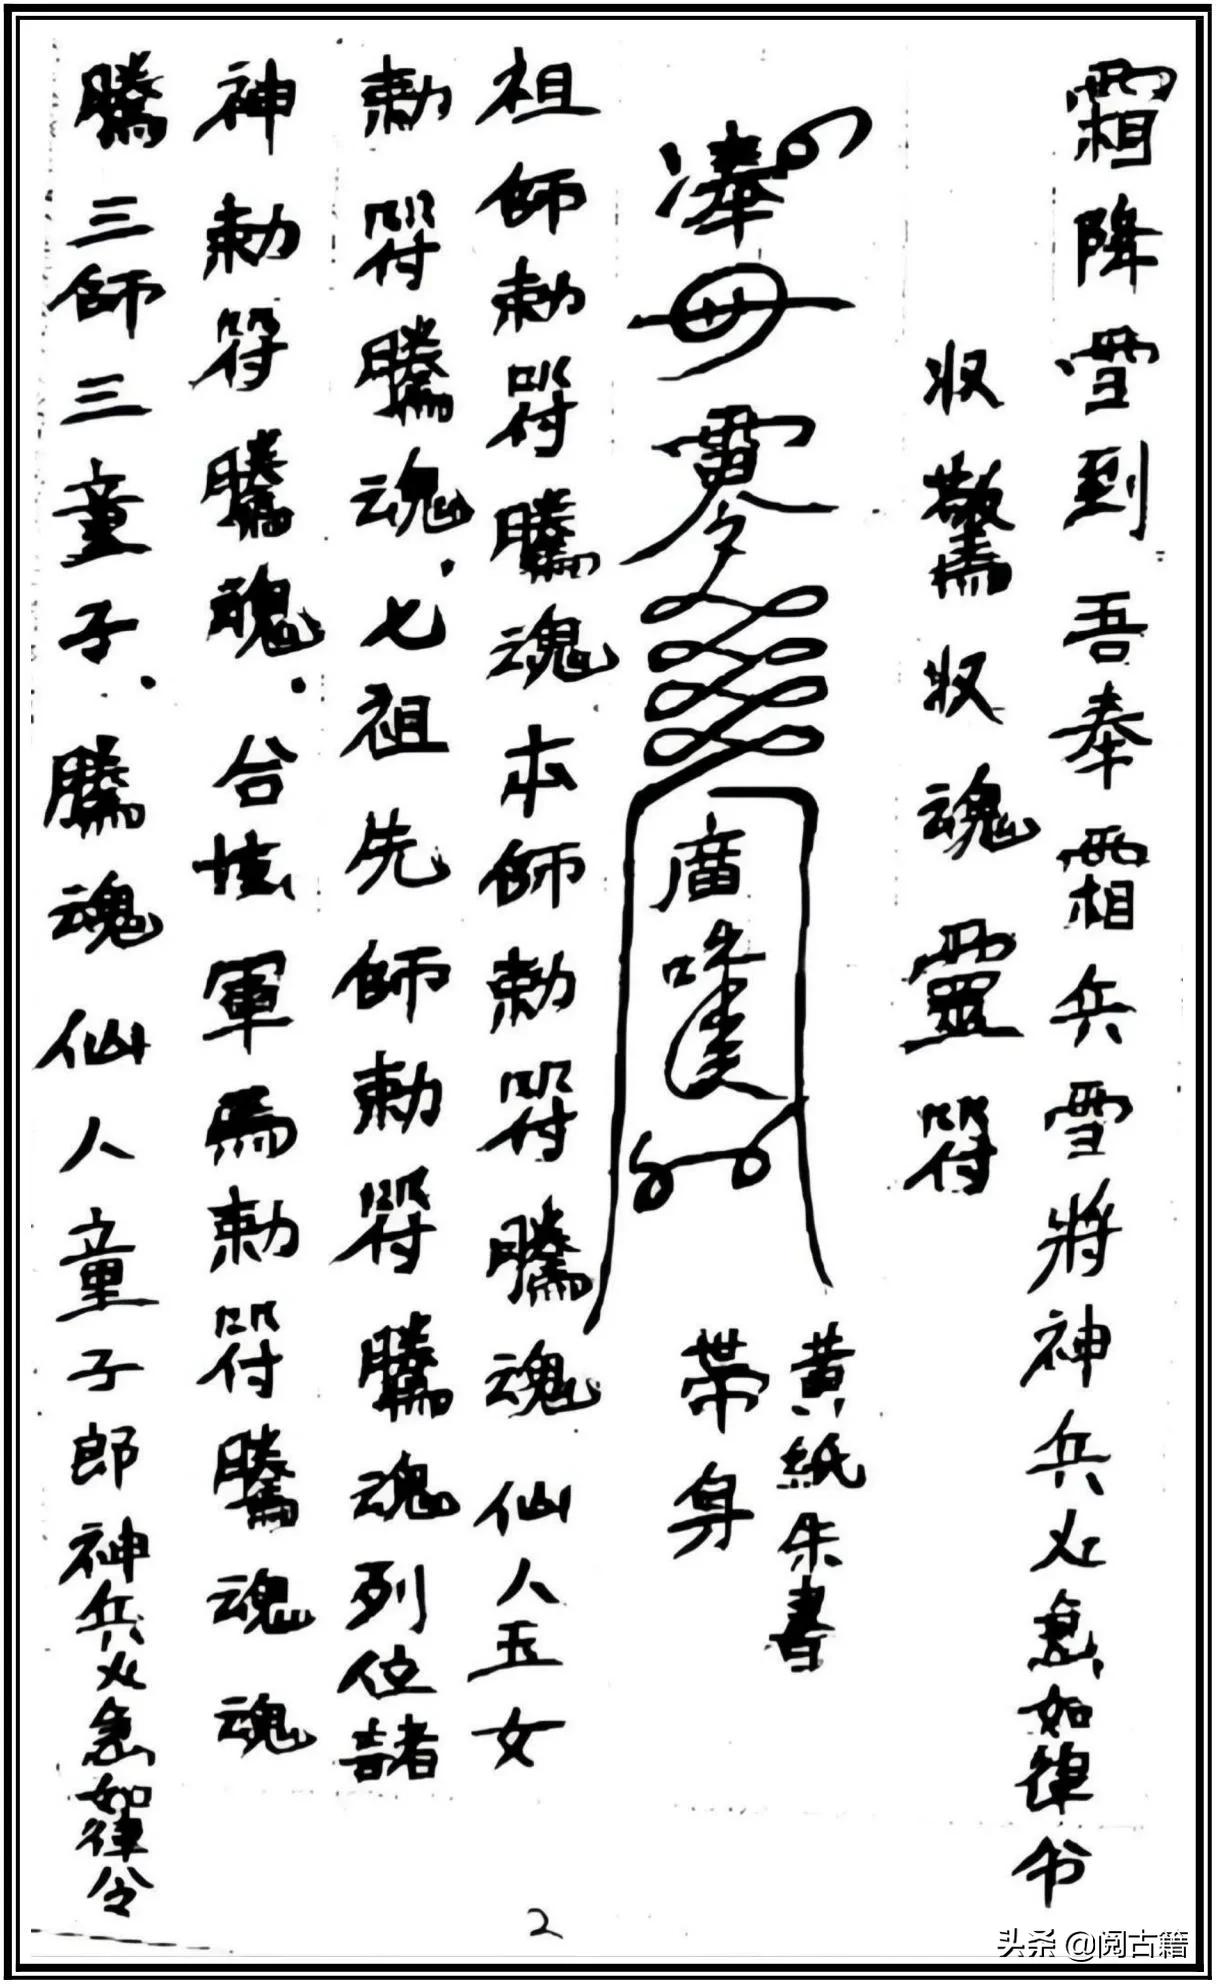 霜降雪到吾奉霜兵雪將神兵火急如律令
收驚收魂靈符
黃紙朱書
帶身
祖師勅符騰魂本師勅符騰魂仙人玉女
勅符騰魂.七祖先師勅符騰魂列位諸
神勅符騰魂.合壇軍馬勅符騰魂魂
騰三師三童子.騰魂仙人童子郎神兵火急如律令
2
头条 @阅古籍